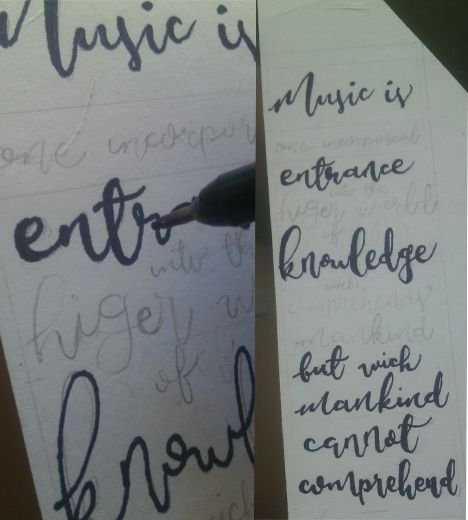 Music is
one incorpor
entra
into th
higer w
of
knowl
Music is
one incorporeal
entrance
into the
higer world
of
knowledge
wich
comprehends
mankind
but wich
mankind
cannot
comprehend